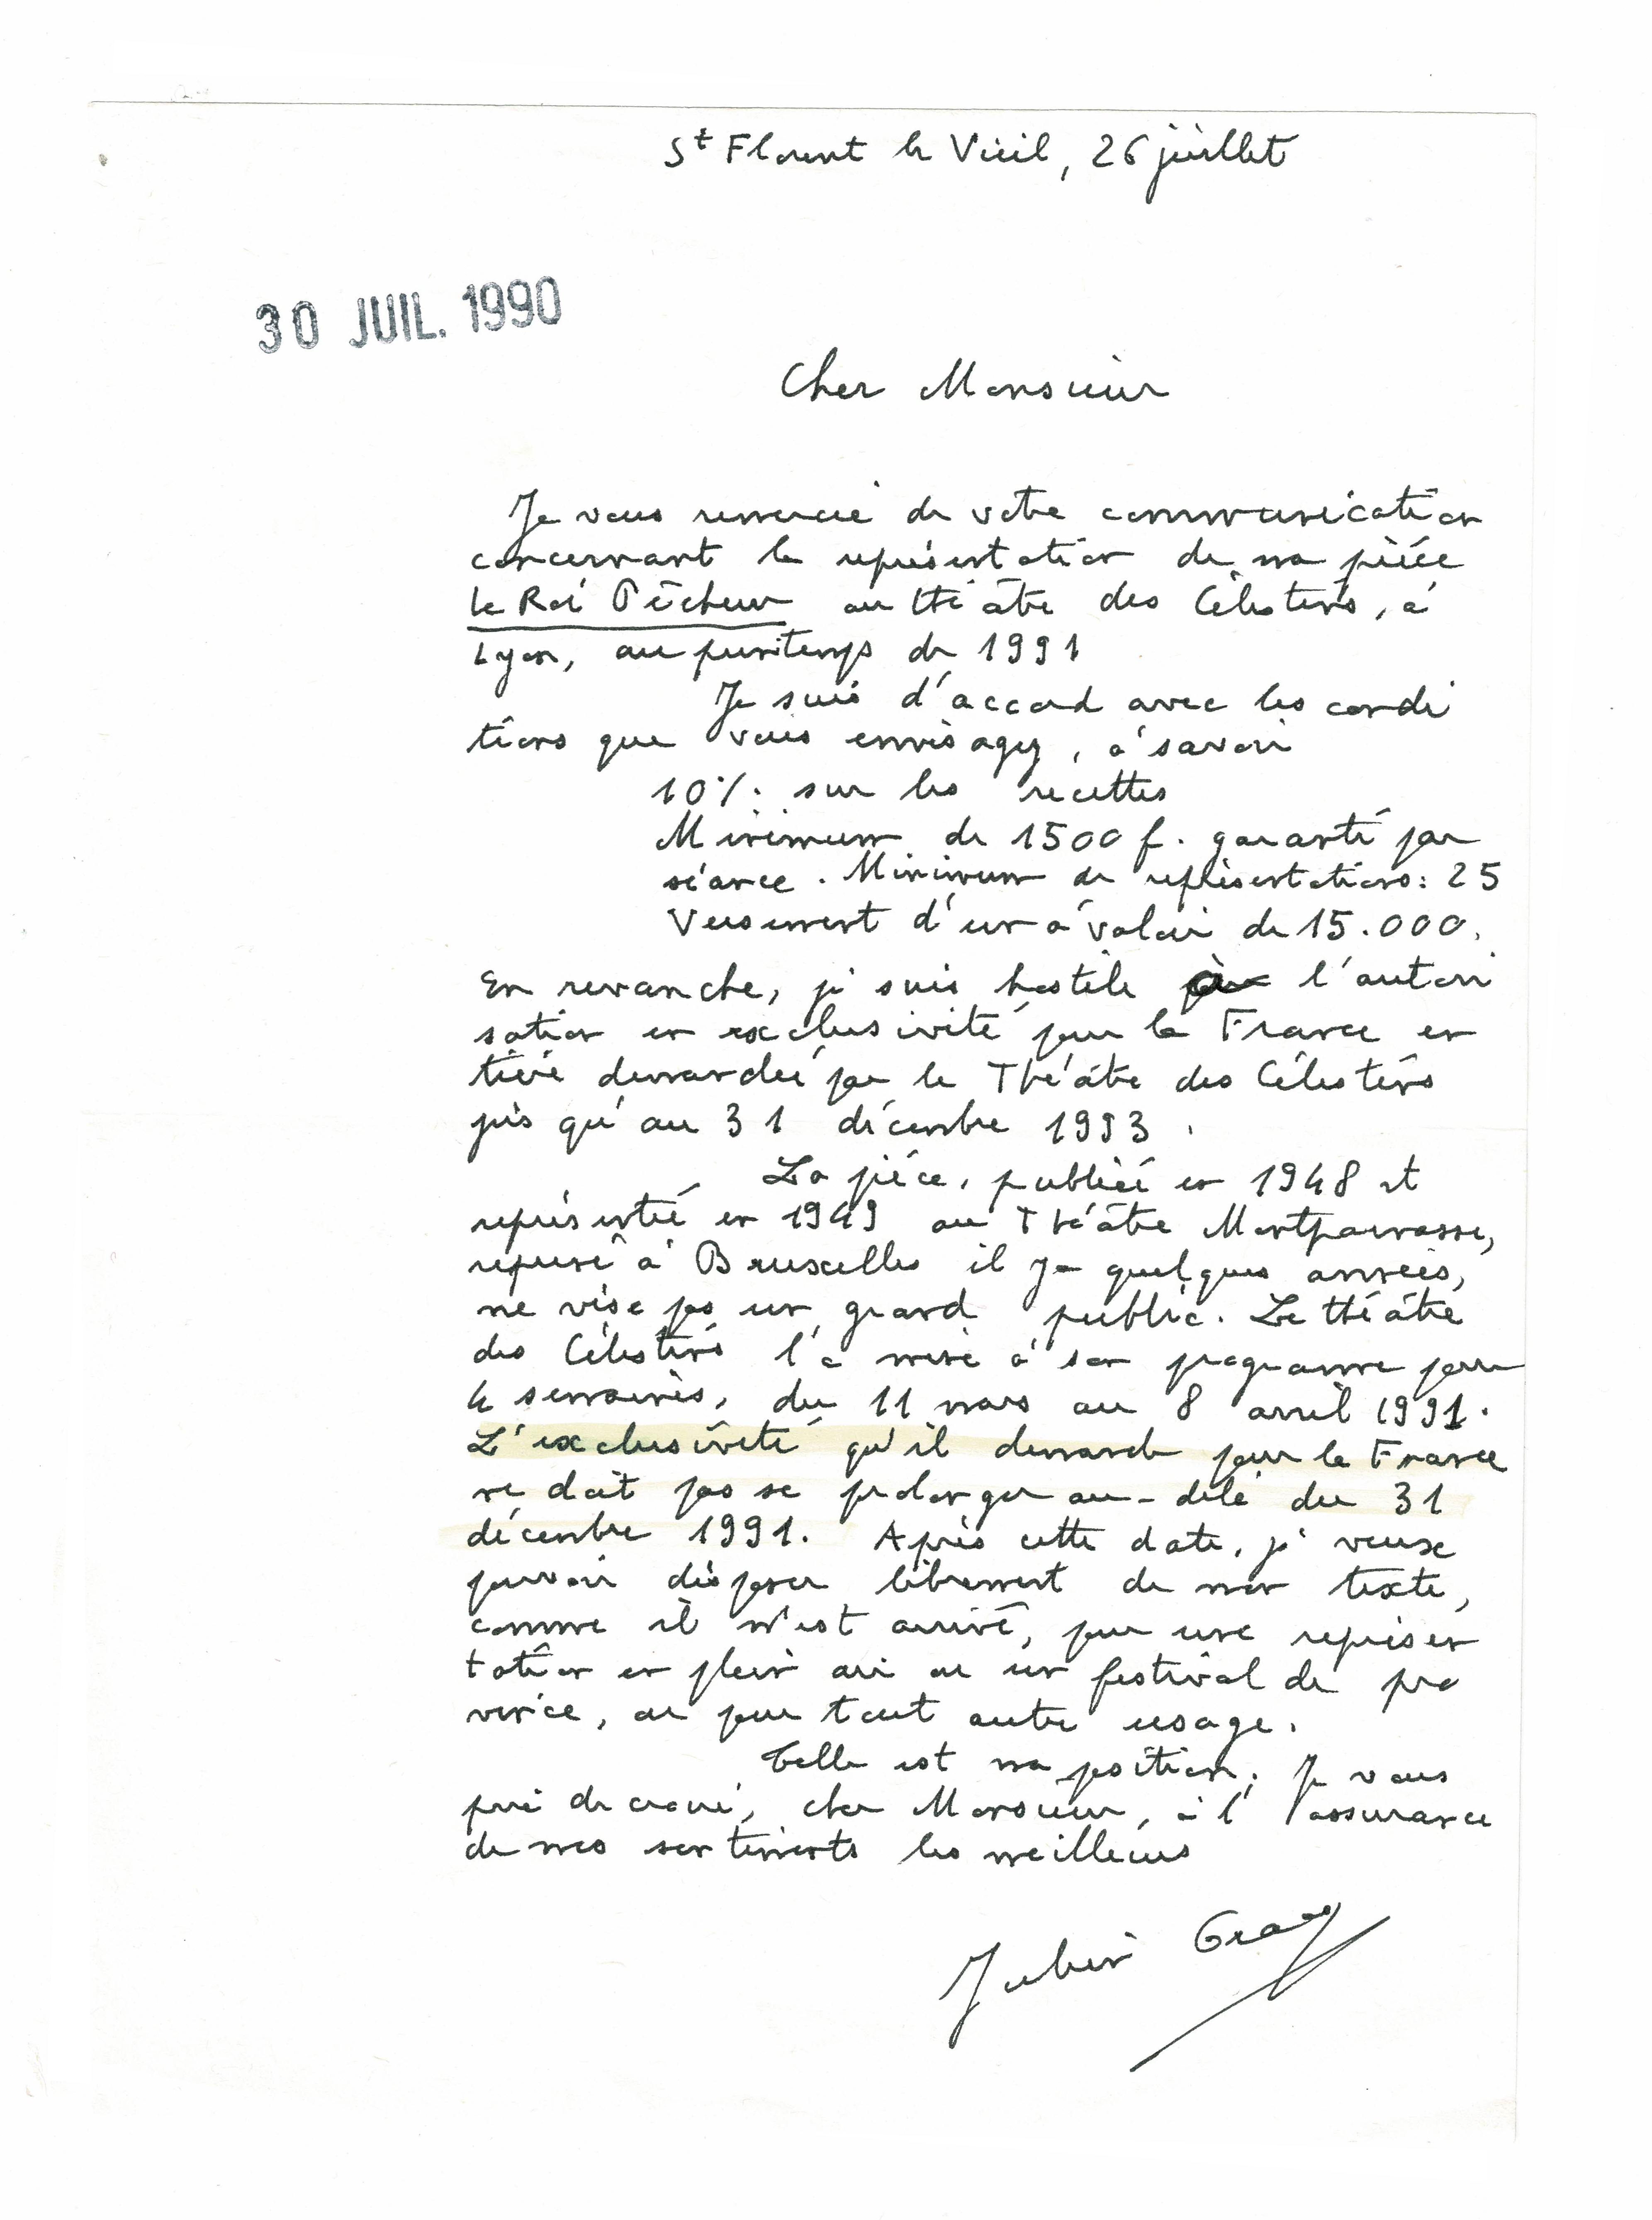 St Florent le Vieil, 26 juillet
30 JUIL. 1990
Cher Monsieur
Je vous remercie de votre communication
concernant la représentation de ma pièce
le Roi Pêcheur au théâtre des Célestins, à
Lyon, au printemps de 1991
Je suis d'accord avec les condi
tions que vous envisagez, à savoir
10% sur les recettes
Minimum de 1500 f. garanti par
séance. Minimum de représentations: 25
Versement d'un à valoir de 15.000.
En revanche, je suis hostile à l'autori
sation en exclusivité pour la France en
tière demandée par le Théâtre des Célestins
jusqu'au 31 décembre 1993.
La pièce, publiée en 1948 et
représentée en 1949 au Théâtre Montparnasse,
reprise à Bruxelles il y a quelques années,
ne vise pas un grand public. Le théâtre
des Célestins l'a mise à son programme pour
4 semaines, du 11 mars au 8 avril 1991.
L'exclusivité qu'il demande pour la France
ne doit pas se prolonger au-delà du 31
décembre 1991. Après cette date, je veux
pouvoir disposer librement de mon texte,
comme il m'est arrivé, pour une représen
tation en plein air ou un festival de pro
vince, ou pour tout autre usage.
Telle est ma position. Je vous
prie de croire, cher Monsieur, à l'assurance
de mes sentiments les meilleurs
Julien Gracq